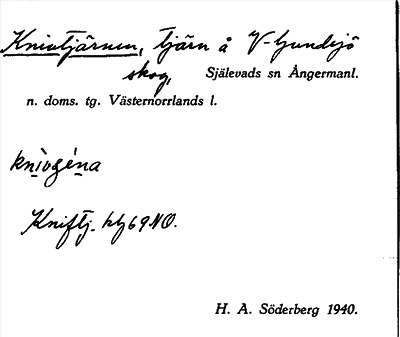 Knivtjärnen, tjärn å V-Gundsjö
skog, Själevads sn Ångermanl.
n. doms. tg. Västernorrlands l.
knìvgéna
Kniftj. kbl 69 NO.
H. A. Söderberg 1940.